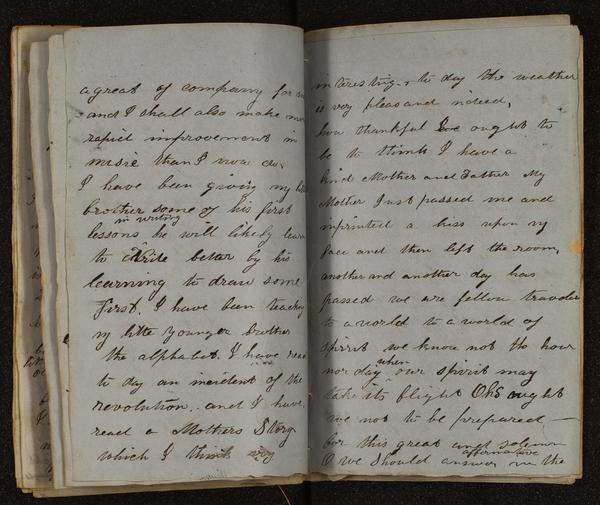 a great of company for me
and I shall also make more
rapid improvement in
music than I now do,
I have been giving my
brother some of his first
in writing
lessons he will likely learn
to write better by his
learning to draw some
First. I have been teaching
my little younger brother
the alphabet. I have read
to day an incident of the
revolution. and I have
read a Mothers Story
which I think very
interesting. to day the weather
is very pleasand indeed,
how thankful we ought to
be to think I have a
kind Mother and Father My
Mother Just passed me and
inprinted a kiss upon my
face and then left the room,
another and another day has
passed we are fellow traveler
to a world to a world of
spirit we know not the hour
when
nor day our spirit may
take its flight Oh ought
we not to be prepared —
for this great and solemn
affirmative
O we should answer in the